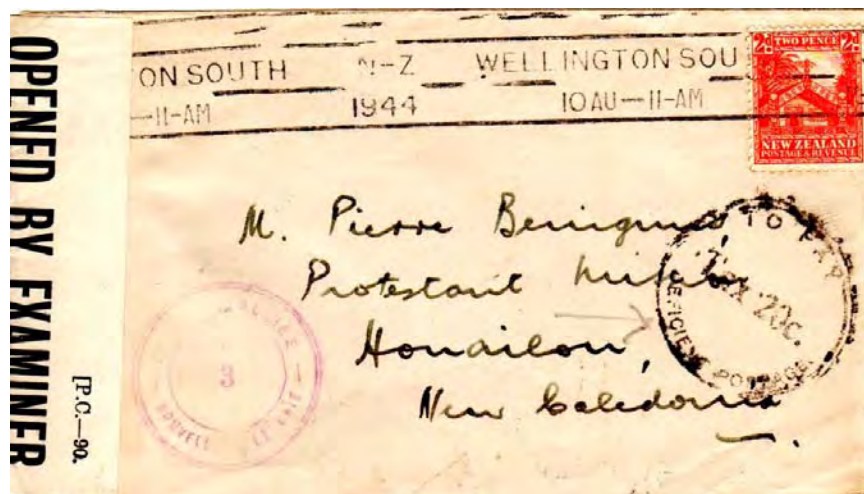 OPENED BY EXAMINER
[P.C.—90.
ON SOUTH N-Z WELLINGTON SOU
—11-AM 1944 10 AU—11-AM
2d TWO PENCE 2d
NEW ZEALAND
POSTAGE & REVENUE
M. Pierre Benignus
Protestant Mission
Houailou,
New Caledonia
TO PAY
Tax 20c.
DEFICIENT POSTAGE
3
NOUVELL